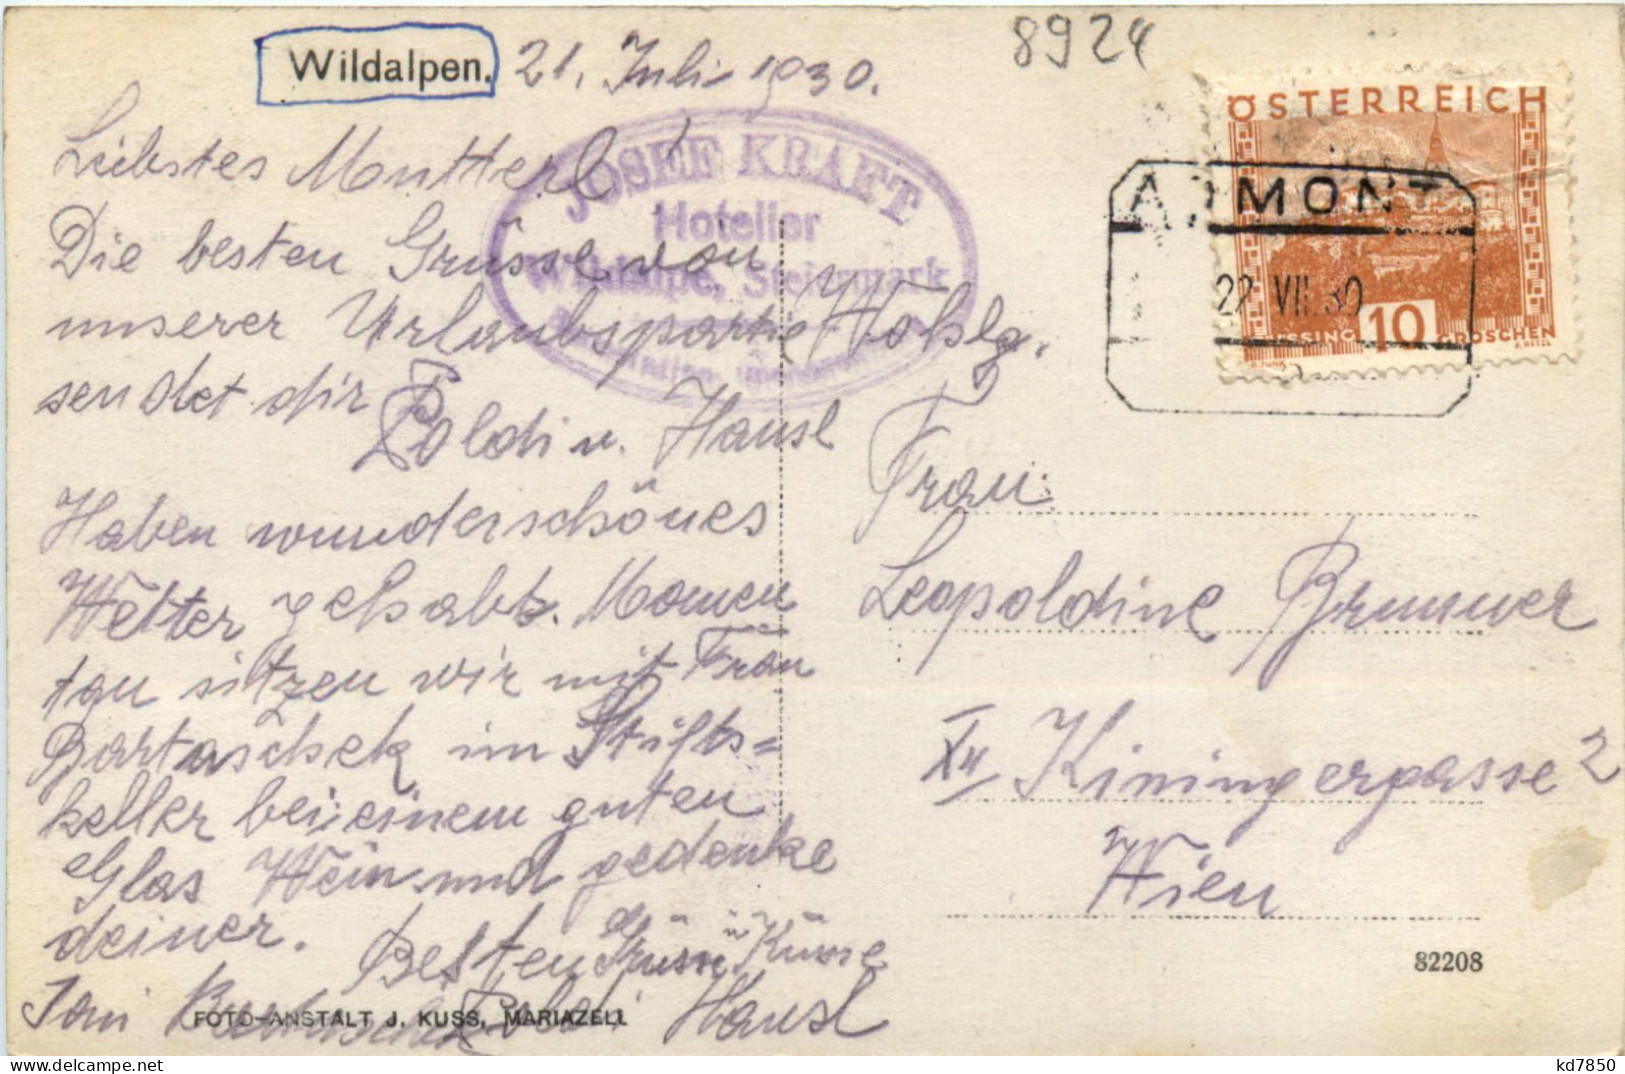 Wildalpen. 21. Juli 1930.
8924
Liebstes Mutterl!
Die besten Grüsse von
unserer Urlaubspartie
sendet dir
Poldi u. Hansl
Haben wunderschönes
Wetter gehabt. Momen
tan sitzen wir mit Frau
Bartaschek im Stifts=
keller bei einem guten
Glas Wein und gedenke
deiner.
Besten Grüsse u Küsse
Poldi Hansl
FOTO-ANSTALT J. KUSS, MARIAZELL
JOSEF KRAFT
Hotelier
Wildalpe, Steiermark
ÖSTERREICH
10 GROSCHEN
ADMONT
22 VII.30
Frau
Leopoldine Brunner
XII Kiningergasse 2
Wien
82208
kd7850